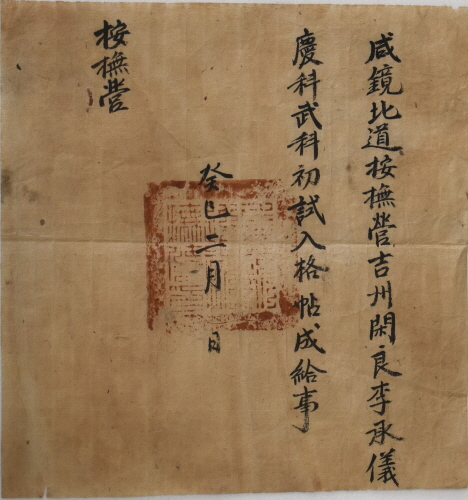 咸鏡北道按撫營吉州閑良李承儀
慶科武科初試入格帖成給事
癸巳二月 日
按撫營